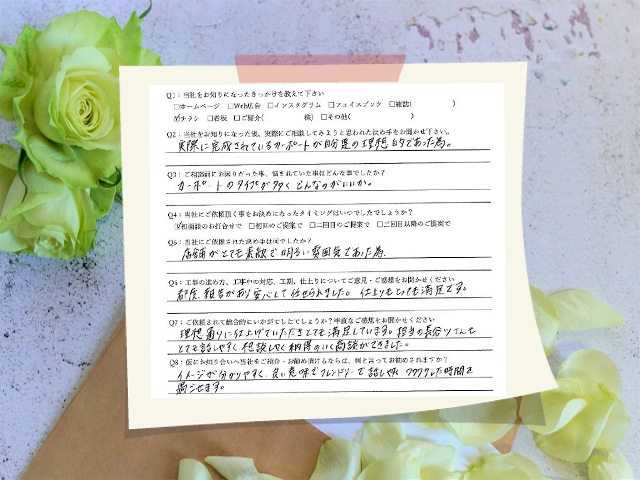 Q1：当社をお知りになったきっかけを教えて下さい
□ホームページ □Web広告 □インスタグラム □フェイスブック □雑誌( )
☑チラシ □看板 □ご紹介( 様) □その他( )
Q2：当社をお知りになった後、実際にご相談してみようと思われた決め手をお聞かせ下さい。
実際に完成されているカーポートが自分達の理想的であった為。
Q3：ご相談前にお困りだった事、悩まれていた事はどんな事でしたか？
カーポートのタイプが多く どんなのがいいか。
Q4：当社にご依頼頂く事をお決めになったタイミングはいつでしたでしょうか？
☑初面談のお打合せで □初回のご提案で □二回目のご提案で □三回目以降のご提案で
Q5：当社にご依頼された決め手は何でしたか？
店舗がとても素敵で明るい雰囲気であった為
Q6：工事の進め方、工事中の対応、工期、仕上りについてご意見・ご感想をお聞かせください
都度、報告があり安心して任せられました。仕上りもとっても満足です。
Q7：ご依頼されて総合的にいかがでしたでしょうか？率直なご感想をお聞かせください
理想通りに仕上げていただきとても満足しています。担当の長谷川さんも
とても話しやすく相談しやすく納得のいく商談ができました。
Q8：仮にお知り合いへ当社をご紹介・お勧め頂けるならば、何と言ってお勧めされますか？
イメージが分かりやすく、良い意味でフレンドリーで話しやすく ワクワクした時間を
過ごせます。